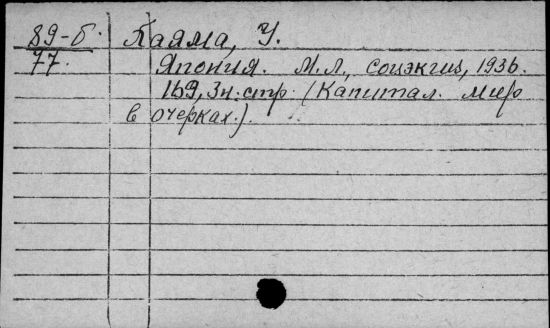 89-б. Каяма, У.
77. Япония. М.Л., соцэкгиз, 1936.
169, 3н. стр. (Капитал. мир
в очерках.)